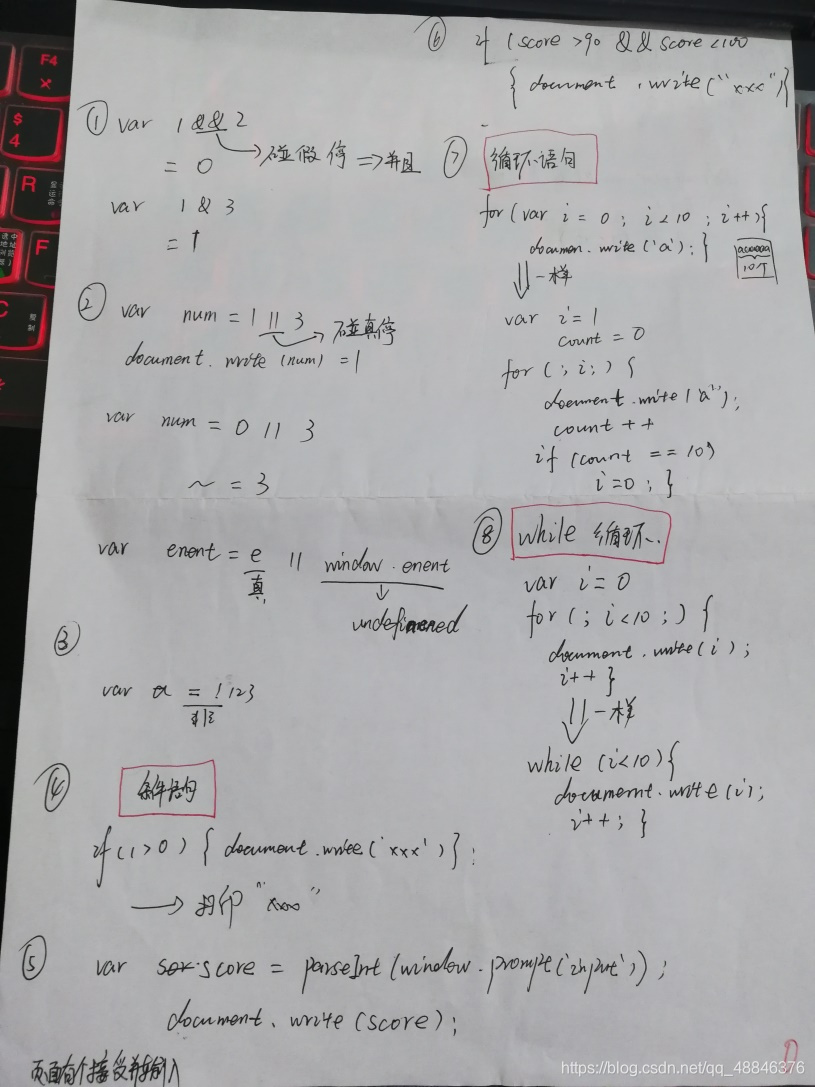 ① var 1 && 2
= 0
碰假停 => 并且
var 1 & 3
= 1
② var num = 1 || 3
碰真停
document. write (num) = 1
var num = 0 || 3
~ = 3
var enent = e || window . enent
真
③
var a = ! 123
④ 条件语句
if (1 > 0) { document.write('xxx') } ;
打印 "xxx"
⑤ var score = parseInt (window . prompt ('input')) ;
document. write (score) ;
页面有个接受并输入
⑥ if (score > 90 && score < 100
{ document . write ("xxx") }
⑦ 循环语句
for (var i = 0 ; i < 10 ; i++) {
documen. write ('a') ; }
aaaaaa
10个
一样
var i = 1
count = 0
for ( ; i ; ) {
document .write ('a') ;
count ++
if (count == 10)
i = 0 ; }
⑧ while 循环.
var i = 0
for ( ; i < 10 ; ) {
document. write ( i ) ;
i++ }
一样
while (i < 10) {
document. write (i) ;
i++ ; }
F4
$
4
R
F
C
复制
https://blog.csdn.net/qq_48846376